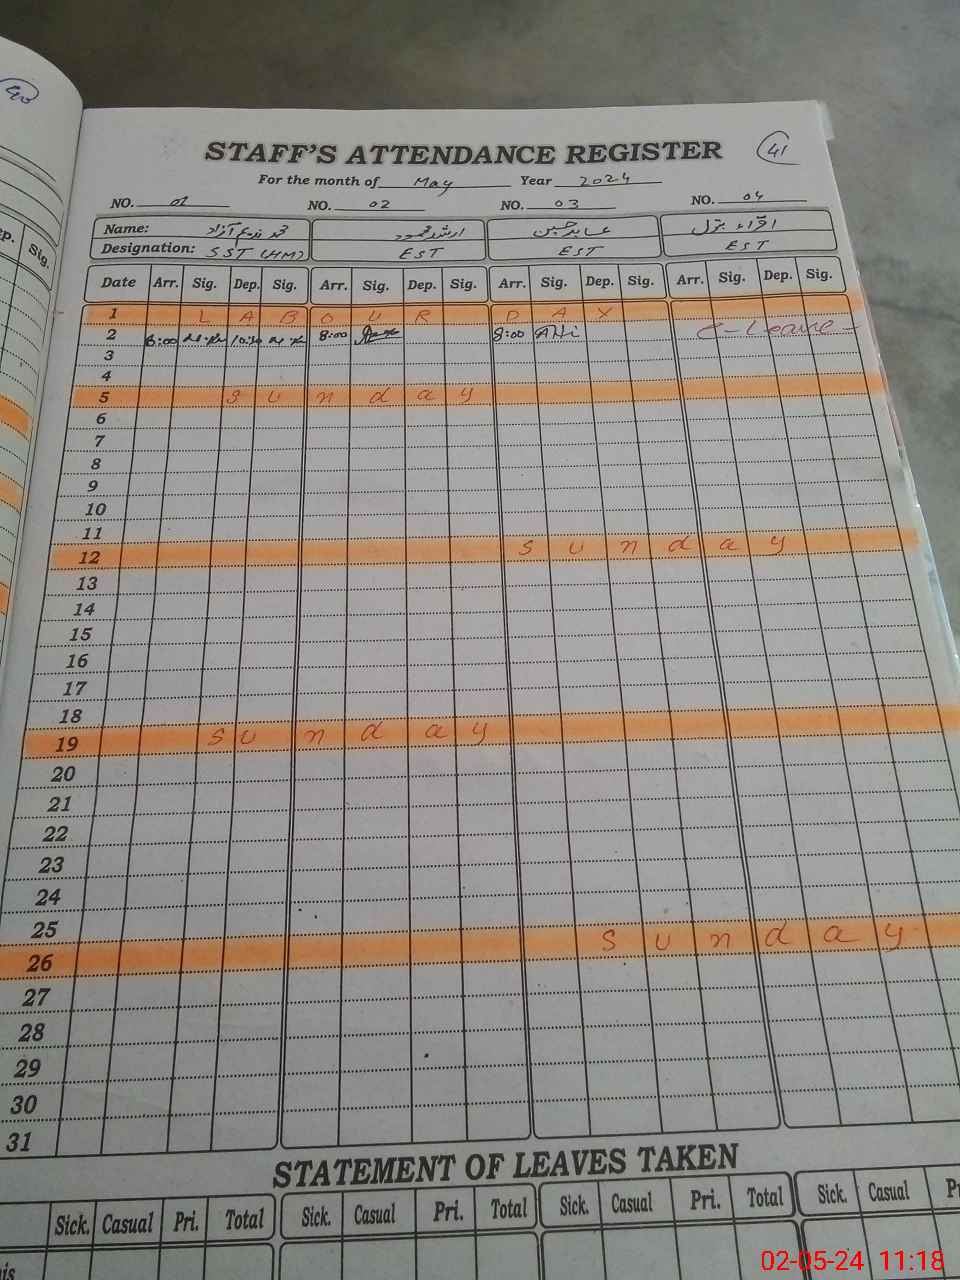 40
STAFF'S ATTENDANCE REGISTER 41
For the month of May Year 2024
NO. 01 NO. 02 NO. 03 NO. 04
Name: محمد آزاد ارشد محمود عابد حسین اقراء بتول
Designation: SST (HM) EST EST EST
p. Sig.
Date Arr. Sig. Dep. Sig. Arr. Sig. Dep. Sig. Arr. Sig. Dep. Sig. Arr. Sig. Dep. Sig.
1 LABOUR DAY
2 8:00 10:30 8:00 8:00 C-Leave-
3
4
5 Sunday
6
7
8
9
10
11
12 Sunday
13
14
15
16
17
18
19 Sunday
20
21
22
23
24
25
26 Sunday
27
28
29
30
31
STATEMENT OF LEAVES TAKEN
Sick. Casual Pri. Total Sick. Casual Pri. Total Sick. Casual Pri. Total Sick. Casual P
is
02-05-24 11:18